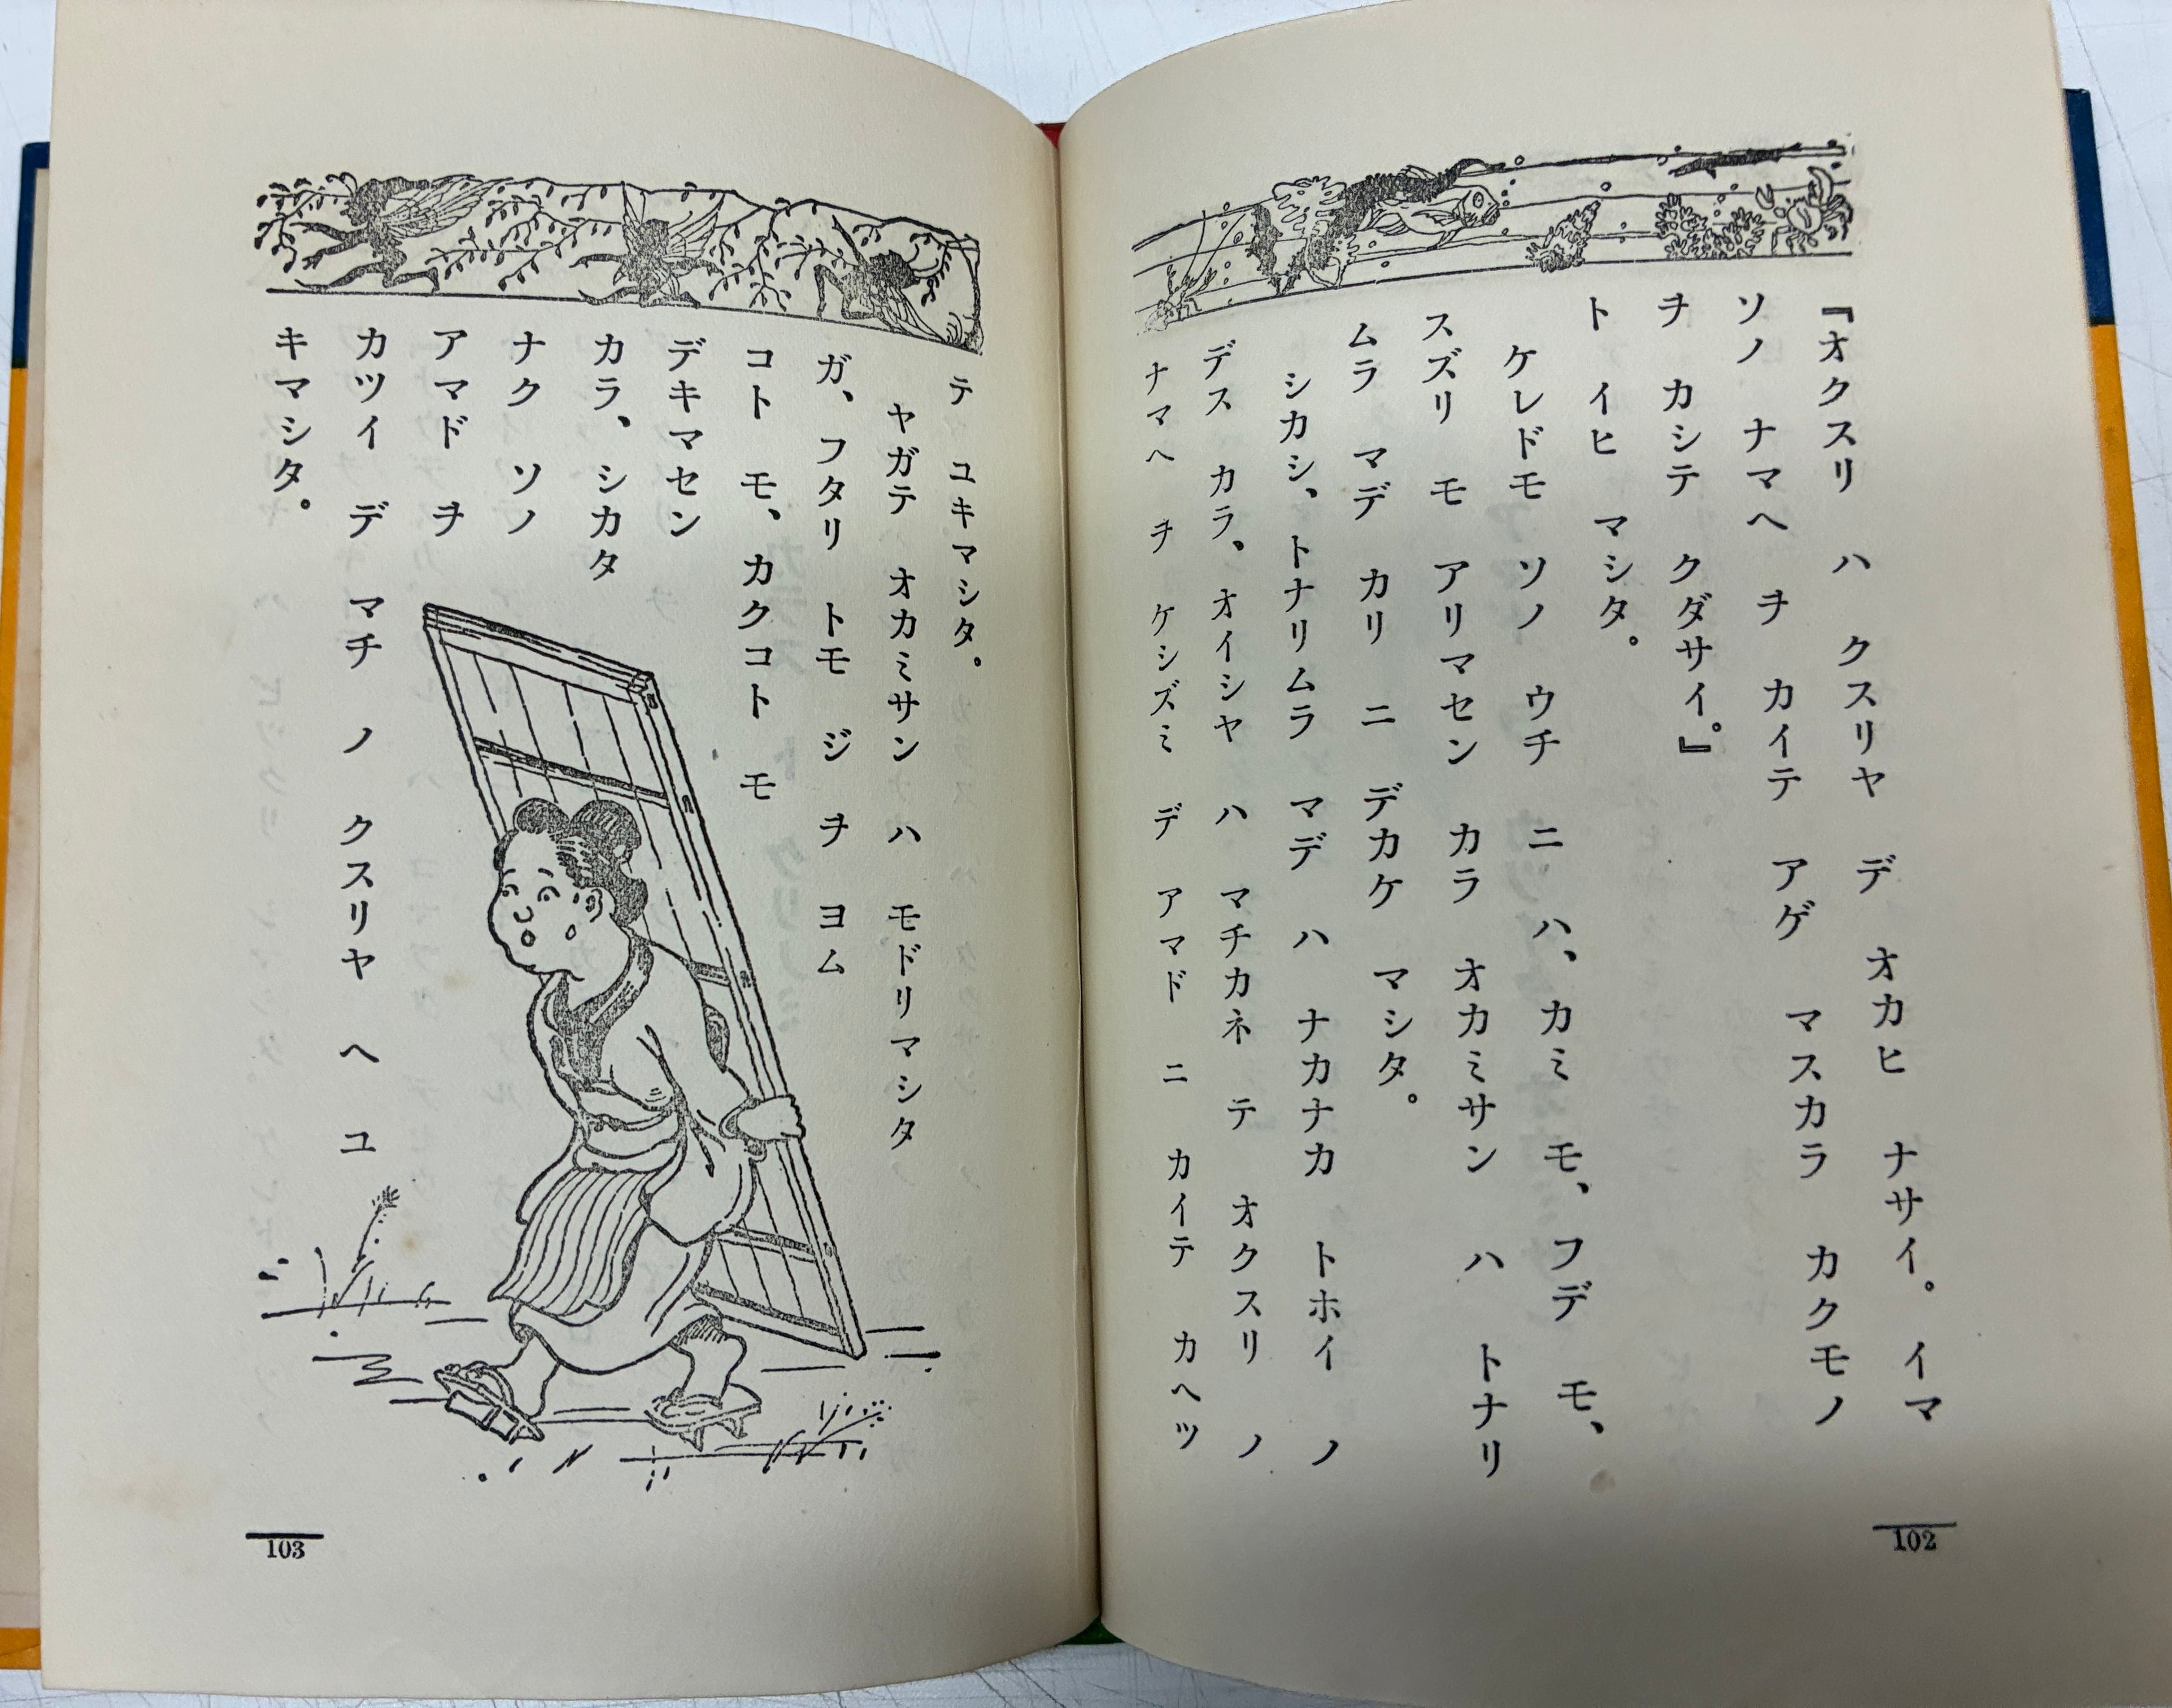 『オクスリ ハ クスリヤ デ オカヒ ナサイ。イマ
ソノ ナマヘ ヲ カイテ アゲ マスカラ カクモノ
ヲ カシテ クダサイ。』
ト イヒ マシタ。
ケレドモ ソノ ウチ ニ ハ、カミ モ、フデ モ、
スズリ モ アリマセン カラ オカミサン ハ トナリ
ムラ マデ カリ ニ デカケ マシタ。
シカシ、トナリムラ マデ ハ ナカナカ トホイ ノ
デス カラ、オイシヤ ハ マチカネ テ オクスリ ノ
ナマヘ ヲ ケシズミ デ アマド ニ カイテ カヘツ
102
テ ユキマシタ。
ヤガテ オカミサン ハ モドリマシタ
ガ、フタリ トモ ジ ヲ ヨム
コト モ、カクコト モ
デキマセン
カラ、シカタ
ナク ソノ
アマド ヲ
カツイ デ マチ ノ クスリヤ ヘ ユ
キマシタ。
103